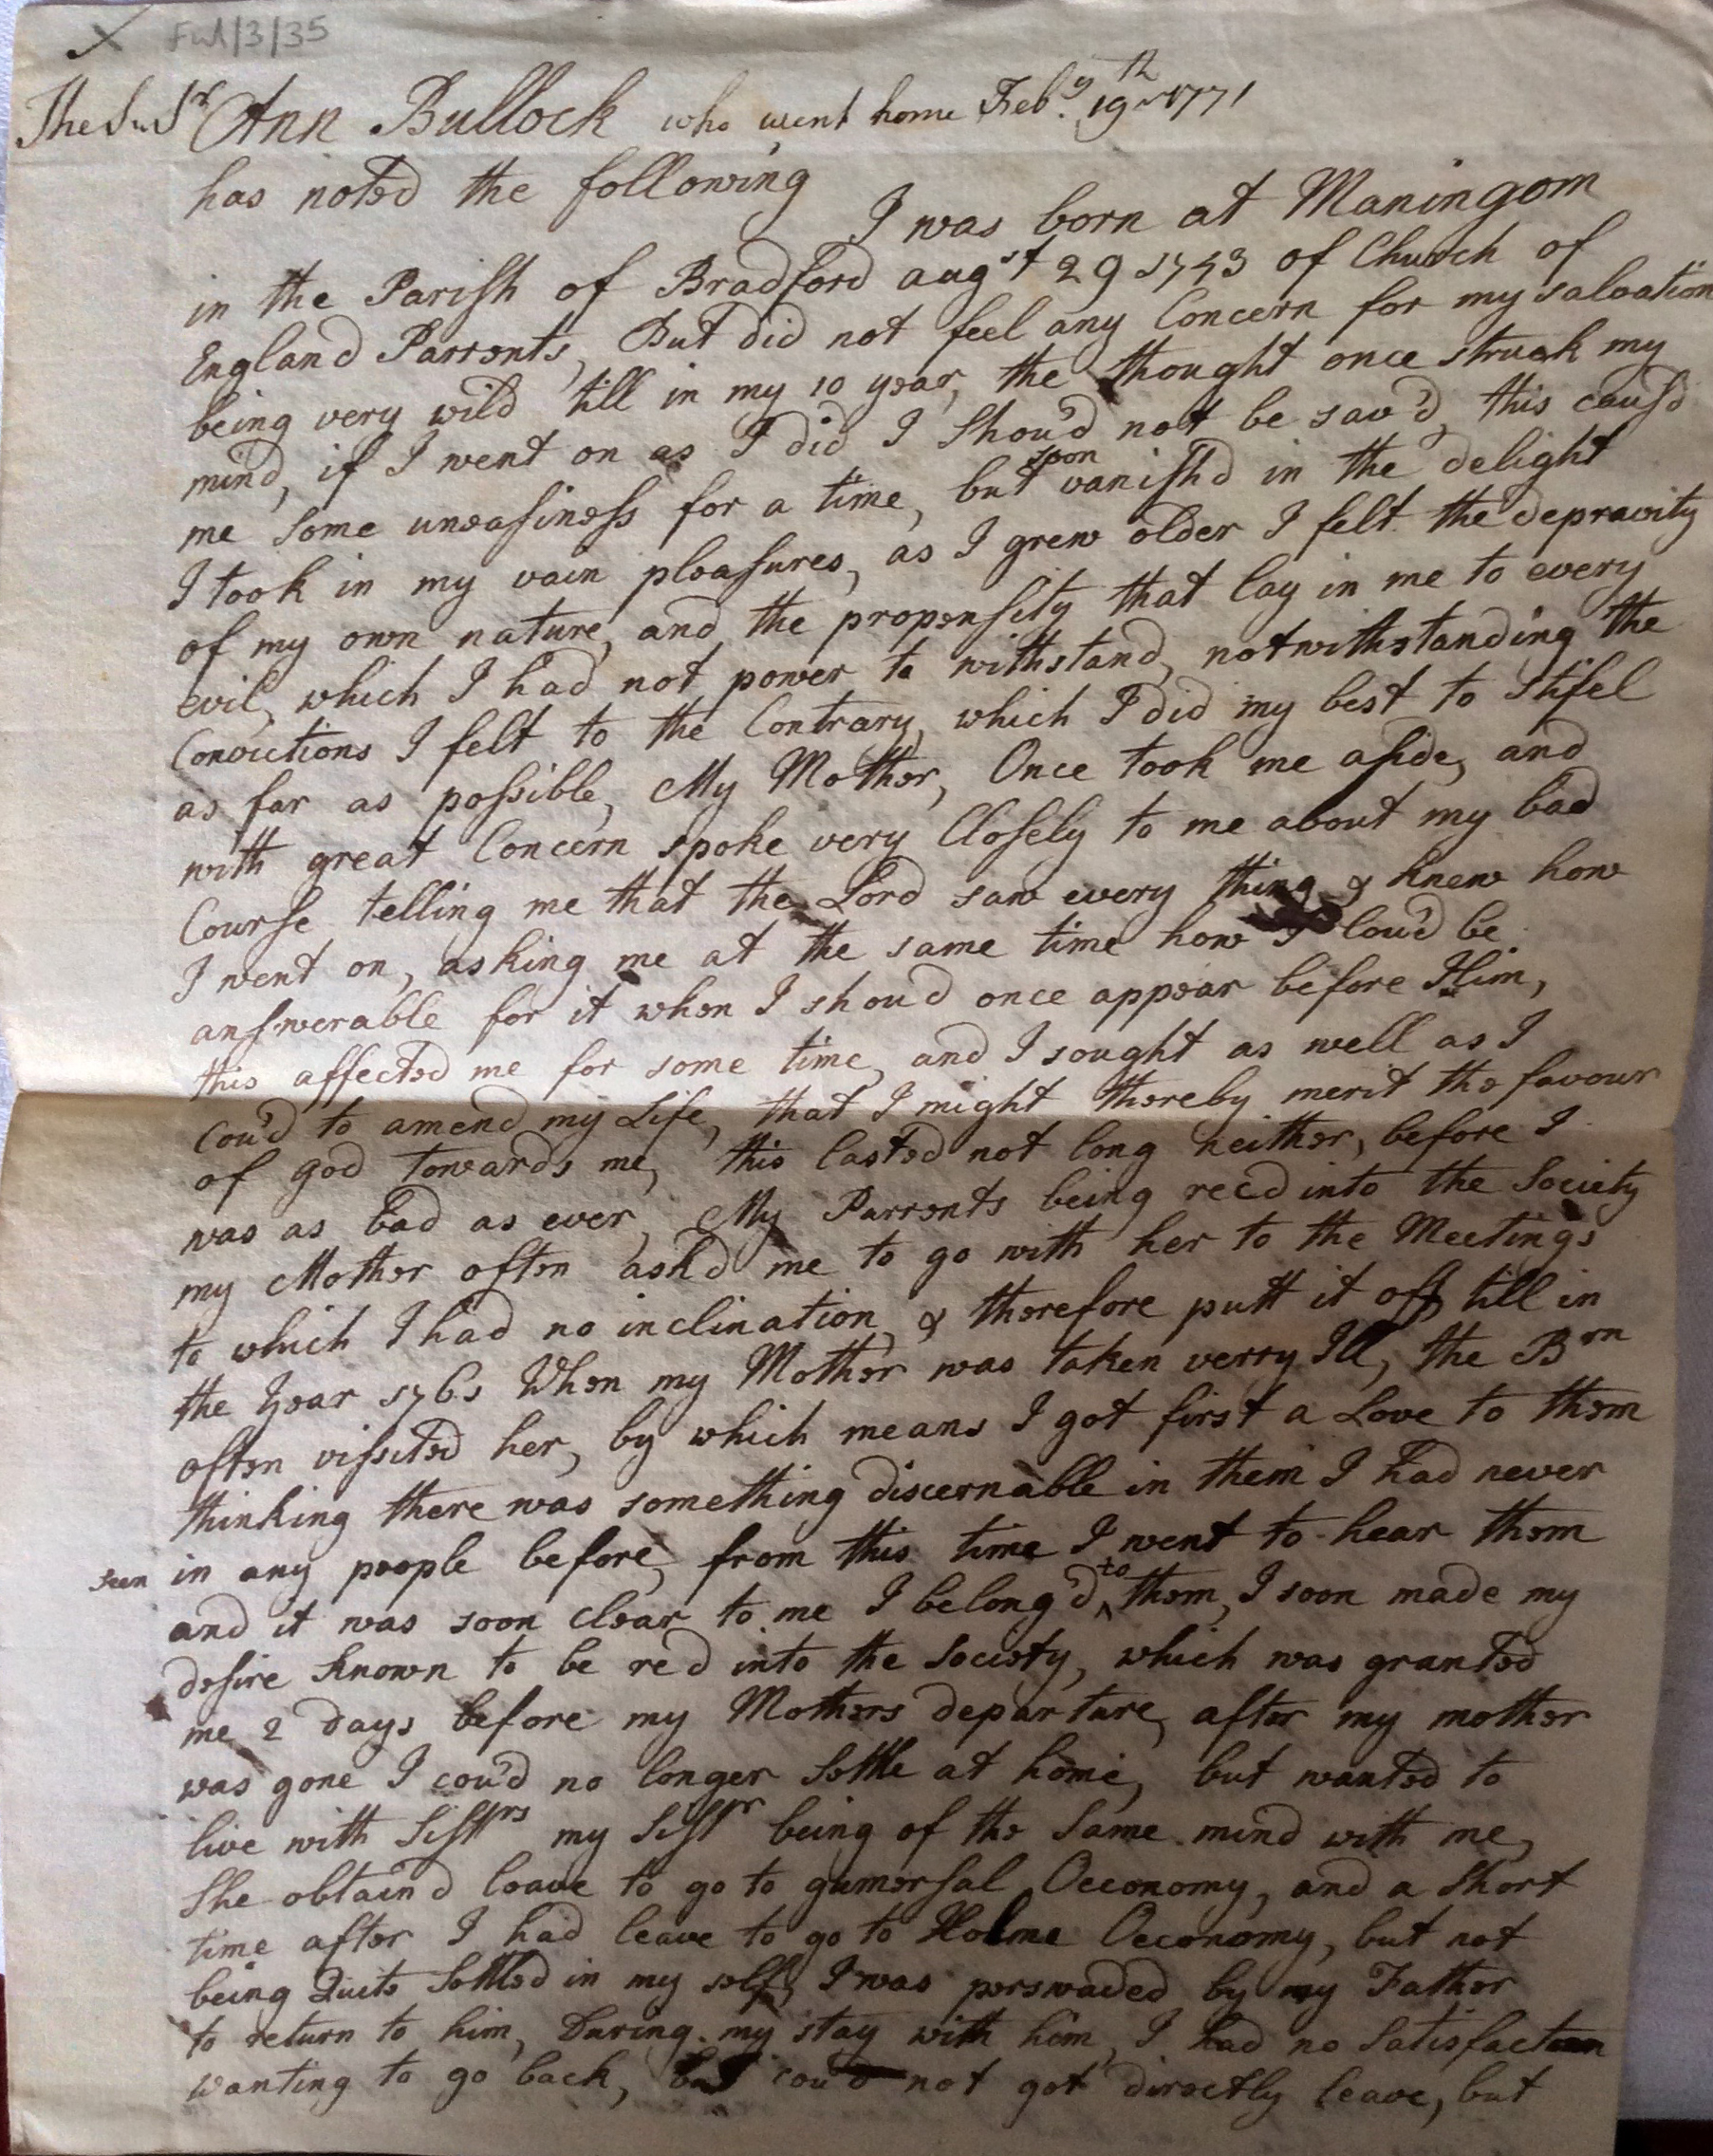 Ful/3/35
The S. Sr Ann Bullock who went home Feby. 19th 1771
has noted the following
I was born at Maningom
in the Parish of Bradford augst 29 1743 of Church of
England Parrents, But did not feel any Concern for my salvation
being very wild till in my 10 year, the thought once struck my
mind, if I went on as I did I Shou'd not be sav'd, this caus'd
me some uneasiness for a time, but soon vanish'd in the delight
I took in my vain pleasures, as I grew older I felt the depravity
of my own nature, and the propensity that lay in me to every
evil, which I had not power to withstand, notwithstanding the
Convictions I felt to the Contrary, which I did my best to stifel
as far as possible, My Mother, Once took me aside, and
with great Concern spoke very Closely to me about my bad
Course telling me that the Lord saw every thing & knew how
I went on, asking me at the same time how I Cou'd be
answerable for it when I shou'd once appear before Him,
this affected me for some time, and I sought as well as I
Cou'd to amend my Life, that I might thereby merit the favour
of god towards me, this lasted not long neither, before I
was as bad as ever, My Parrents being rec'd into the Society
my Mother often ask'd me to go with her to the Meetings
to which I had no inclination, & therefore putt it off till in
the Year 1761 When my Mother was taken verry Ill, the Brn
often vissited her, by which means I got first a Love to them
thinking there was something discernable in them I had never
seen in any people before, from this time I went to hear them
and it was soon clear to me I belong'd to them, I soon made my
desire known to be re'd into the Society, which was granted
me 2 days before my Mothers departure, after my mother
was gone I cou'd no longer Settle at home, but wanted to
live with Sistrs my Sistr being of the Same mind with me,
She obtain'd leave to go to gumersal Oeconomy, and a Short
time after I had leave to go to Holme Oeconomy, but not
being Quite Settled in my self, I was perswaded by my Father
to return to him, During my stay with him, I had no Satisfaction
wanting to go back, but cou'd not get directly leave, but